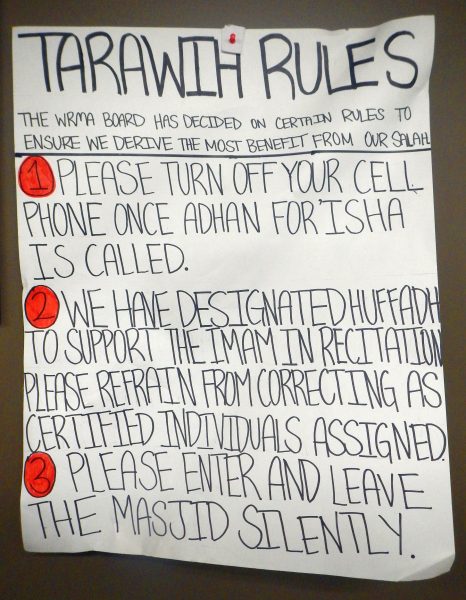 TARAWIH RULES
THE WRMA BOARD HAS DECIDED ON CERTAIN RULES TO
ENSURE WE DERIVE THE MOST BENEFIT FROM OUR SALAH.
1 PLEASE TURN OFF YOUR CELL
PHONE ONCE ADHAN FOR 'ISHA
IS CALLED.
2 WE HAVE DESIGNATED HUFFADH
TO SUPPORT THE IMAM IN RECITATION
PLEASE REFRAIN FROM CORRECTING AS
CERTIFIED INDIVIDUALS ASSIGNED.
3 PLEASE ENTER AND LEAVE
THE MASJID SILENTLY.